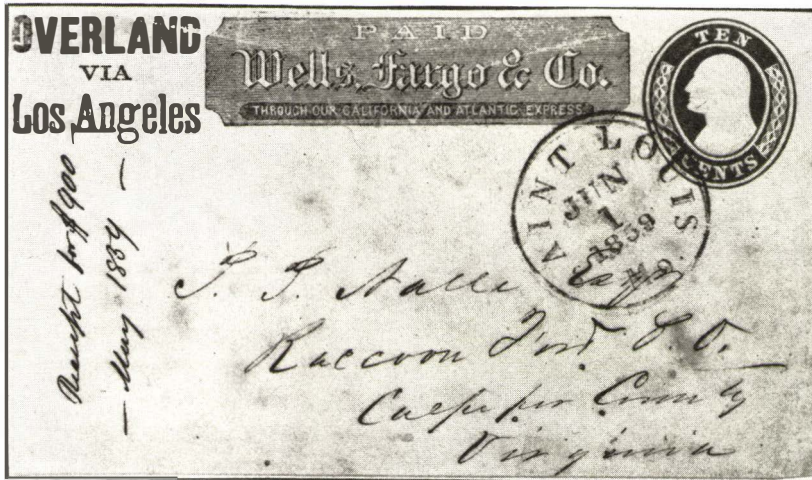 OVERLAND
VIA
Los Angeles
PAID
Wells, Fargo & Co.
THROUGH OUR CALIFORNIA AND ATLANTIC EXPRESS
TEN
CENTS
SAINT LOUIS
JUN
1
1859
Mo.
Receipt for $900
— May 1859 —
P. P. Nalle Esqr
Raccoon Ford P.O.
Culpeper County
Virginia